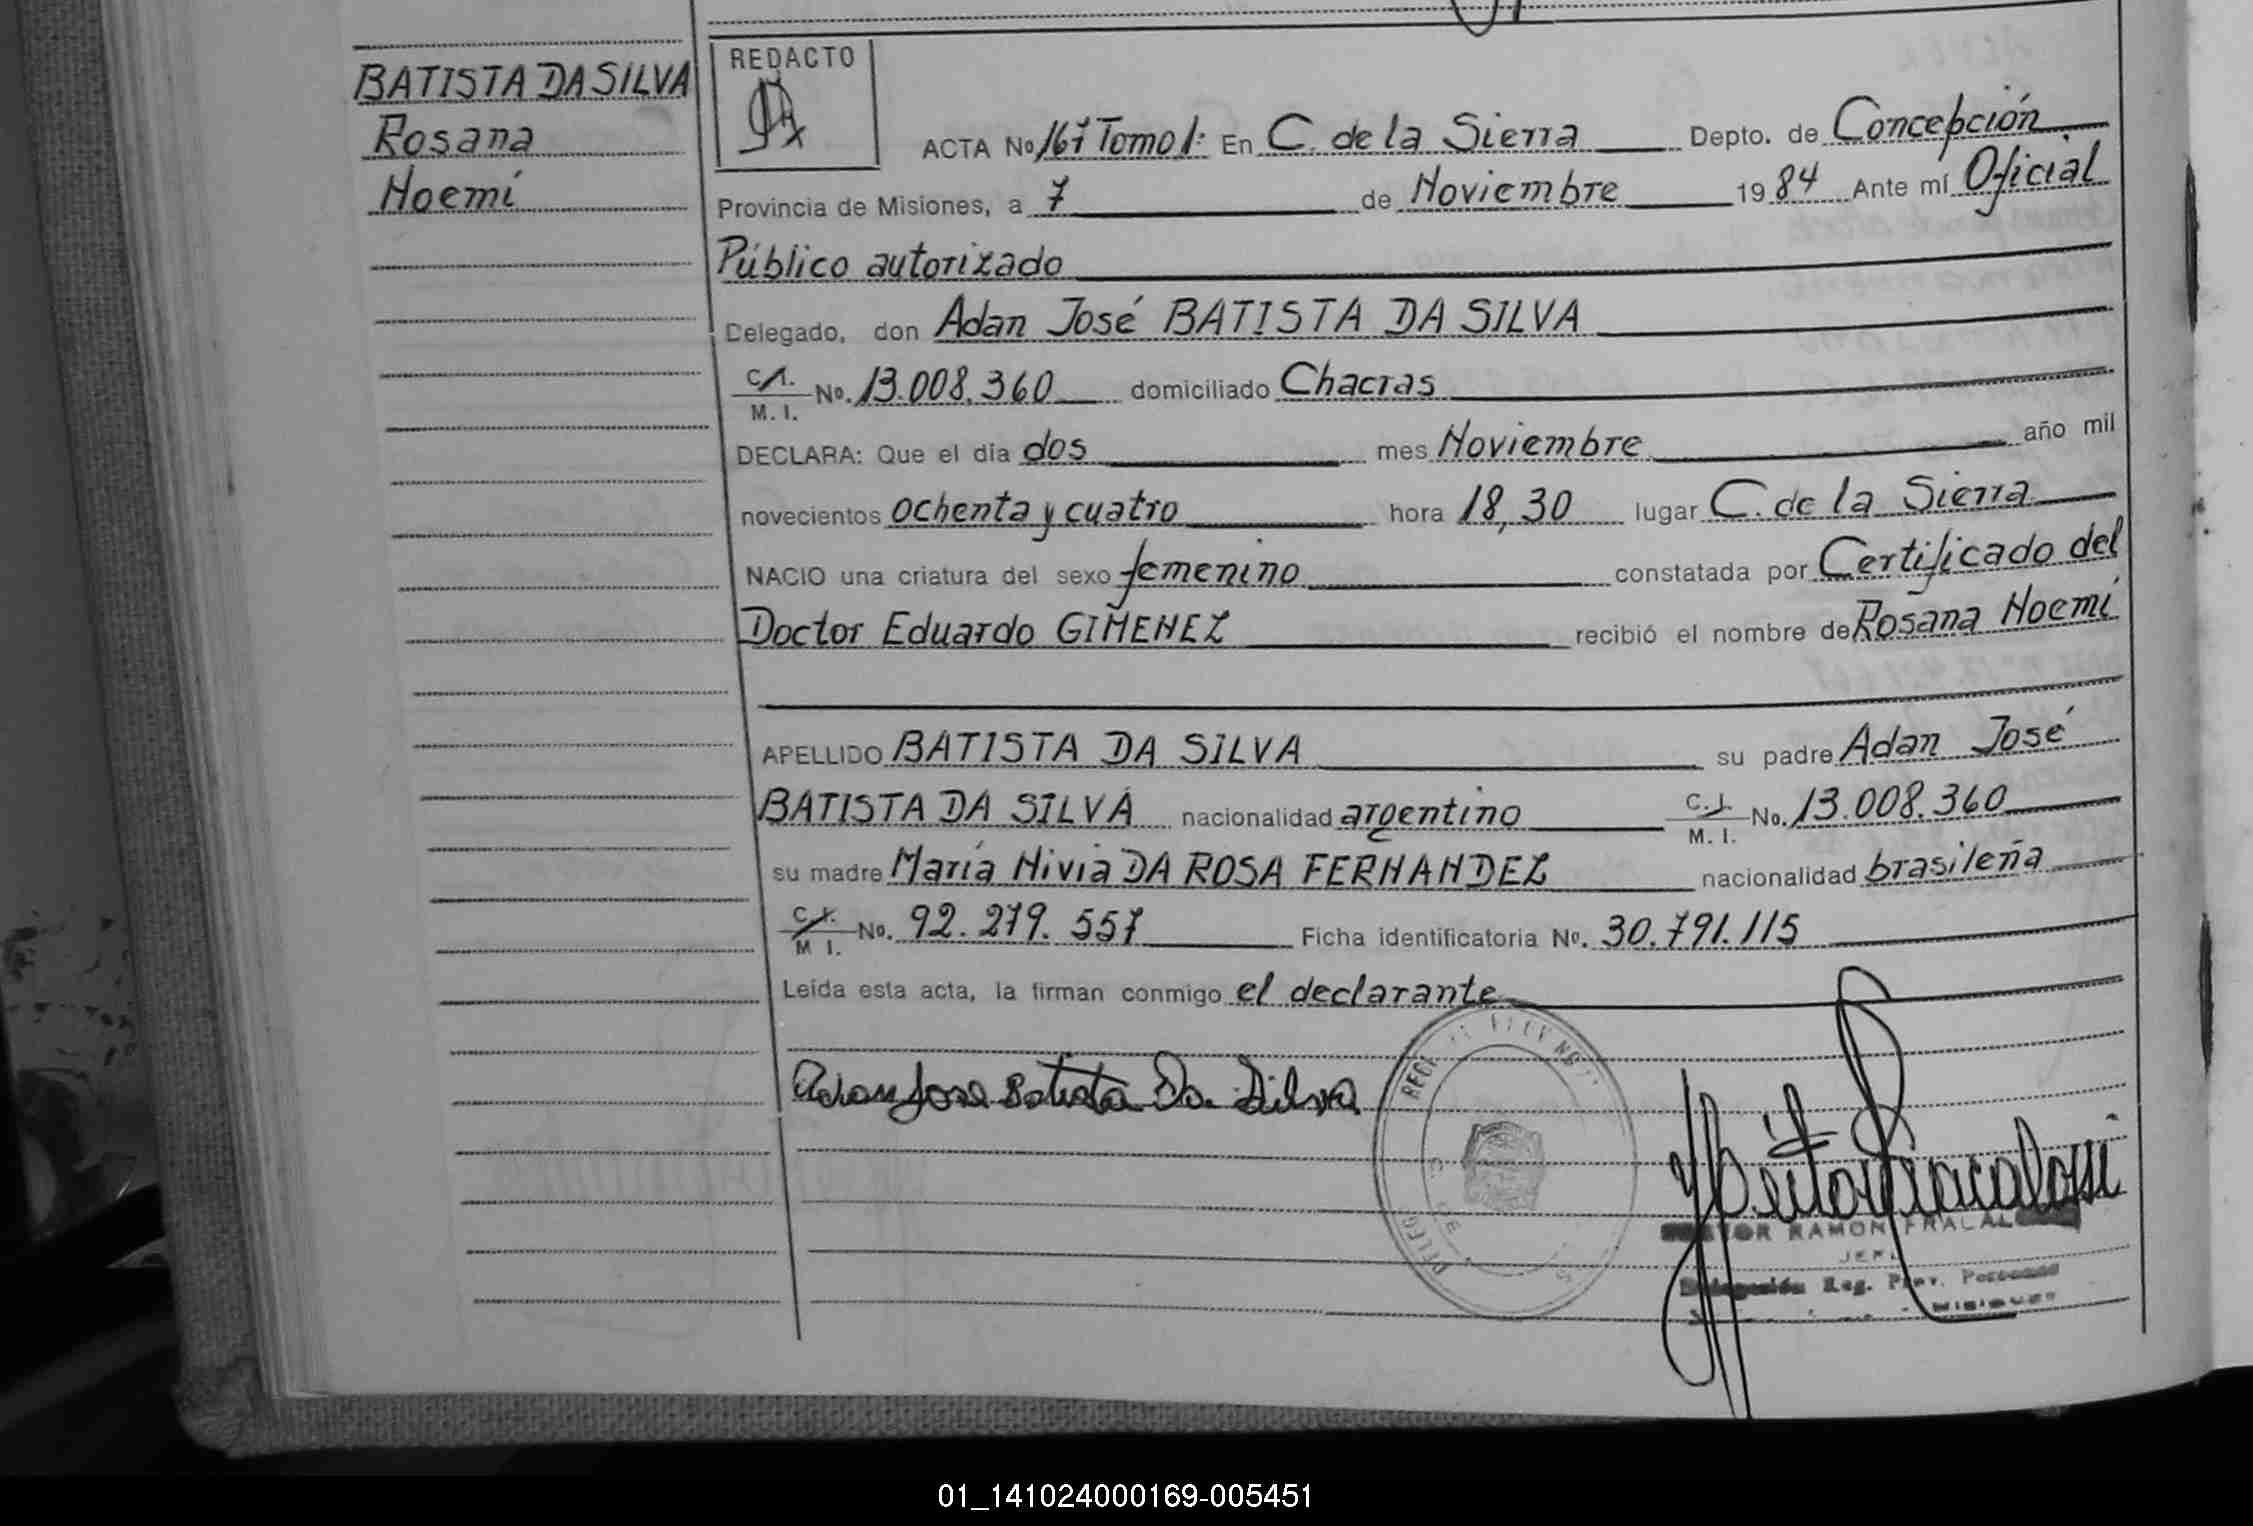 BATISTA DA SILVA
Rosana
Noemí
REDACTO
ACTA No 167 Tomo 1: En C. de la Sierra Depto. de Concepción
Provincia de Misiones, a 7 de Noviembre 1984 Ante mí Oficial
Público autorizado
Delegado, don Adan José BATISTA DA SILVA
C.I. M. I. No. 13.008.360 domiciliado Chacras
DECLARA: Que el día dos mes Noviembre año mil
novecientos ochenta y cuatro hora 18,30 lugar C. de la Sierra
NACIO una criatura del sexo femenino constatada por Certificado del
Doctor Eduardo GIMENEZ recibió el nombre de Rosana Noemí
APELLIDO BATISTA DA SILVA su padre Adan José
BATISTA DA SILVA nacionalidad argentino C.I. M. I. No. 13.008.360
su madre María Nivia DA ROSA FERNANDEZ nacionalidad brasileña
C.I. M I. No. 92.279.557 Ficha identificatoria No. 30.791.115
Leída esta acta, la firman conmigo el declarante
Adan Jose Batista Da Silva
RAMON
JEFE
Delegación Reg. Prov. Personas
MISIONES
01_141024000169-005451